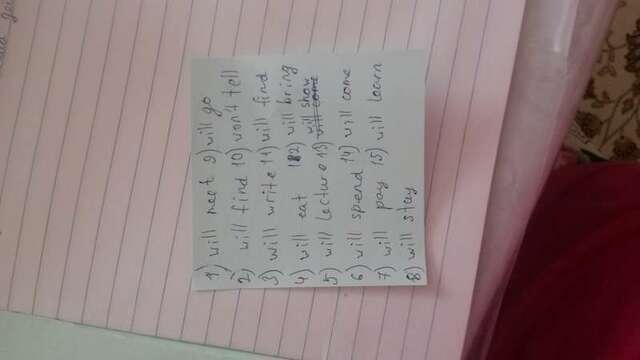 1) will meet 9) will go
2) will find 10) won't tell
3) will write 11) will find
4) will eat 12) will bring
5) will lecture 13) will show
6) will spend 14) will come
7) will pay 15) will learn
8) will stay